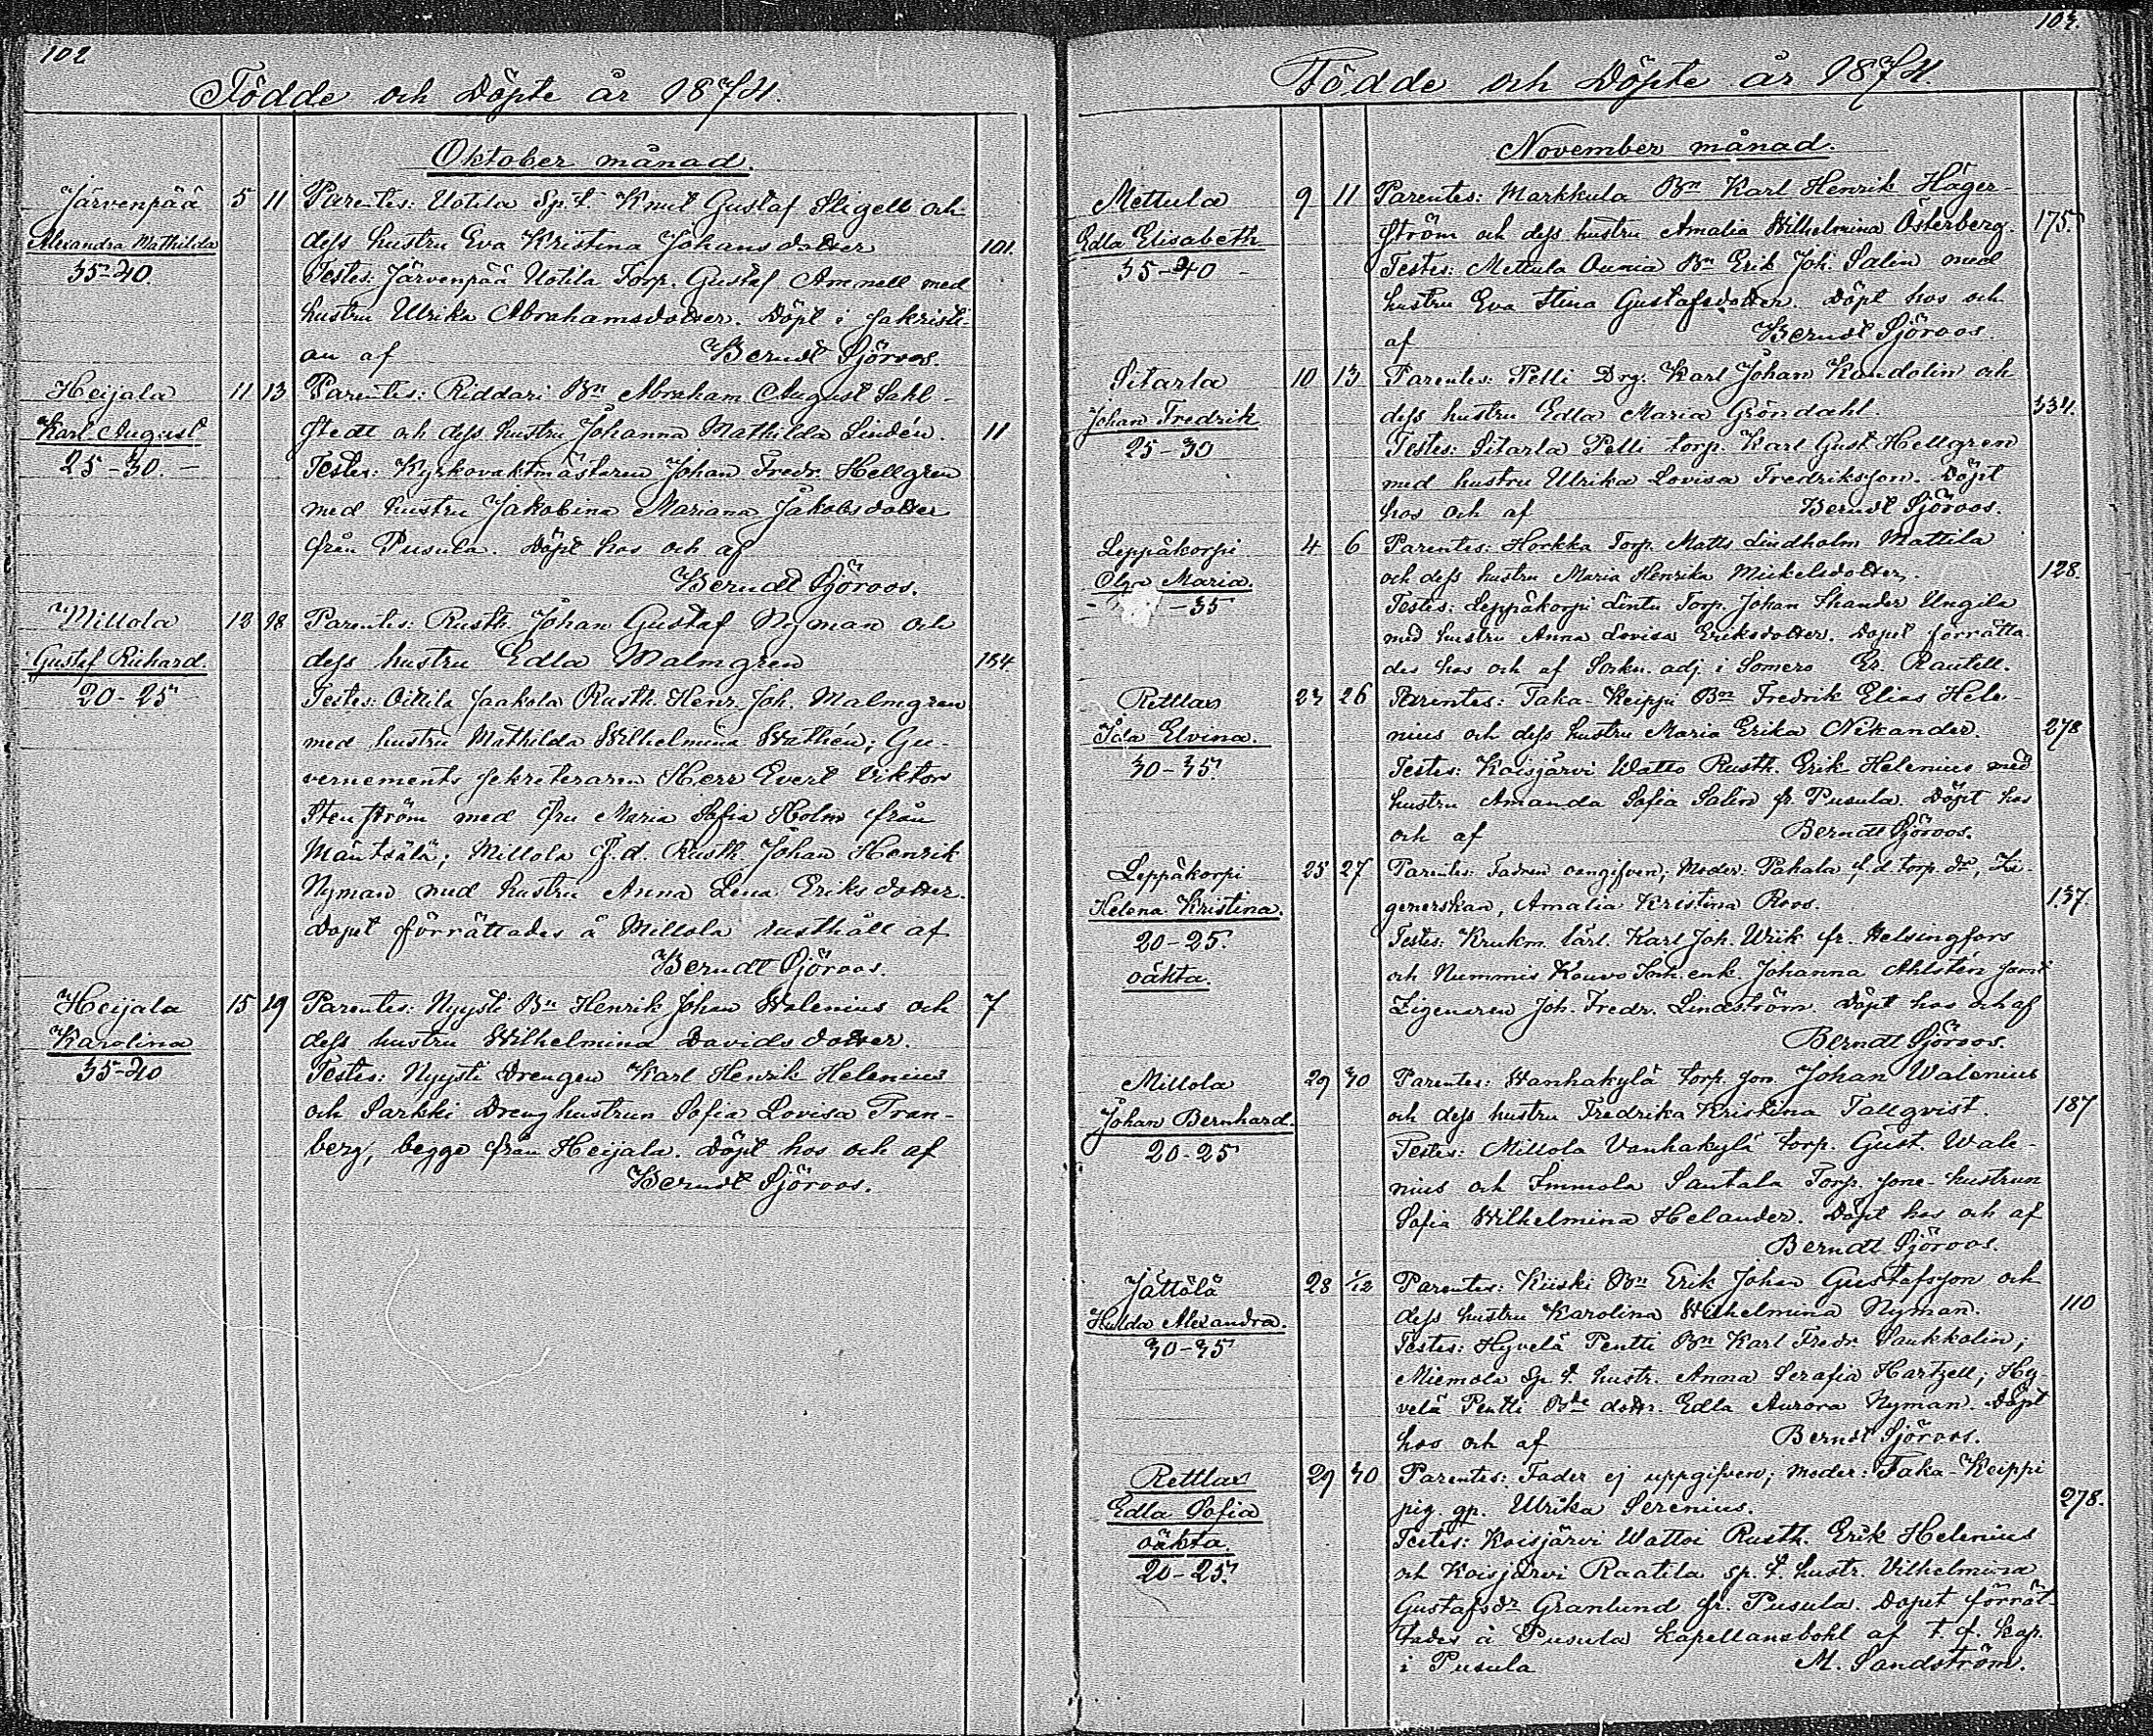 102
Födde och Döpte år 1874.
Oktober månad.
Järvenpää 5 11 Parentes: Uotila Sp. t. Knut Gustaf Stigell och
Alexandra Mathilda dess hustru Eva Kristina Johansdotter 101.
35-40. Testes: Järvenpää Uotila Torp. Gustaf Ammell med
hustru Ulrika Abrahamsdotter. Döpt i sakristi-
an af Berndt Sjöroos.
Heijala 11 13 Parentes: Riddari Bn Abraham August Sahl-
Karl August stedt och dess hustru Johanna Mathilda Lindén. 11
25-30. - Testes: Kyrkovaktmästaren Johan Fredr. Hellgren
med hustru Jakobina Mariana Jakobsdotter
från Pusula. Döpt hos och af
Berndt Sjöroos.
Millola 12 18 Parentes: Rusth. Johan Gustaf Nyman och
Gustaf Richard. dess hustru Edla Malmgren 184.
20-25 Testes: Oittila Jaakola Rusth. Henr. Joh. Malmgren
med hustru Mathilda Wilhelmina Wathén; Gu-
vernements sekreteraren Herr Evert Viktor
Stenström med fru Maria Sofia Holm från
Mäntsälä; Millola f. d. Rusth. Johan Henrik
Nyman med hustru Anna Lena Eriksdotter.
Dopet förrättades å Millola rusthåll af
Berndt Sjöroos.
Heijala 15 19 Parentes: Nyysti Bn Henrik Johan Walenius och 7
Karolina dess hustru Wilhelmina Davidsdotter.
35-40 Testes: Nyysti Drengen Karl Henrik Helenius
och Sarkki Drenghustrun Sofia Lovisa Tran-
berg, begge från Heijala. Döpt hos och af
Berndt Sjöroos.
103.
Födde och Döpte år 1874.
November månad.
Mettula 9 11 Parentes: Markkula Bn Karl Henrik Häger-
Edla Elisabeth ström och dess hustru Amalia Wilhelmina Österberg. 175.
35-40 - Testes: Mettula Ounia Bn Erik Joh. Salin med
hustru Eva Stina Gustafsdotter. Döpt hos och
af Berndt Sjöroos.
Sitarla 10 13 Parentes: Pelli Drg: Karl Johan Kandolin och
Johan Fredrik dess hustru Edla Maria Gröndahl. 334.
25-30 Testes: Sitarla Pelli torp. Karl Gust. Hellgren
med hustru Ulrika Lovisa Fredriksson. Döpt
hos och af Berndt Sjöroos.
Leppäkorpi 4 6 Parentes: Horkka Torp. Matts Lindholm Mattila
Olga Maria. och dess hustru Maria Henrika Mickelsdotter. 128.
-35 Testes: Leppäkorpi Lintu Torp. Johan Skander Ungila
med hustru Anna Lovisa Eriksdotter. Dopet förrätta-
des hos och af Sockn. adj. i Somero Er. Rautell.
Retlax 23 26 Parentes: Taka-Keippi Bn Fredrik Elias Hele-
Ida Elvina. nius och dess hustru Maria Erika Nikander. 278
30-35 Testes: Koisjärvi Watto Rusth. Erik Helenius med
hustru Amanda Sofia Salin fr. Pusula. Döpt hos
och af Berndt Sjöroos.
Leppäkorpi 25 27 Parentes: Fadren oangifven; Moder: Pahala f. d. torp. dr, Zi-
Helena Kristina. generskan, Amalia Kristina Roos. 137.
20-25. Testes: Krukm. lärl. Karl Joh. Wiik fr. Helsingfors
oäkta. och Nummis Kouvo Smk. enk. Johanna Ahlstén samt
Zigenaren Joh. Fredr. Lindström. Döpt hos och af
Berndt Sjöroos.
Millola 29 30 Parentes: Wanhakylä torp. son Johan Walenius
Johan Bernhard. och dess hustru Fredrika Kristina Tallqvist. 187
20-25 Testes: Millola Vanhakylä torp. Gust. Wale-
nius och Immola Santala Torp. sone hustrun
Sofia Wilhelmina Helander. Döpt hos och af
Berndt Sjöroos.
Jättölä 28 1/12 Parentes: Kiiski Bn Erik Johan Gustafsson och
Hulda Alexandra. dess hustru Karolina Wilhelmina Nyman. 110
30-35 Testes: Hyvelä Pentti Bn Karl Fredr. Saukkolin;
Miemola Sp. t. hustr. Anna Serafia Hartzell; Hy-
velä Pentti Bde dottr. Edla Aurora Nyman. Döpt
hos och af Berndt Sjöroos.
Retlax 29 30 Parentes: Fader ej uppgifven; Moder: Taka-Keippi
Edla Sofia pig. qp. Ulrika Serenius. 278.
oäkta. Testes: Koisjärvi Wattoi Rusth. Erik Helenius
20-25. och Koisjärvi Raatila sp. t. hustr. Vilhelmina
Gustafsdr Granlund fr. Pusula. Dopet förrät-
tades å Pusula Kapellansbohl af t. f. Kap.
i Pusula M. Sandström.